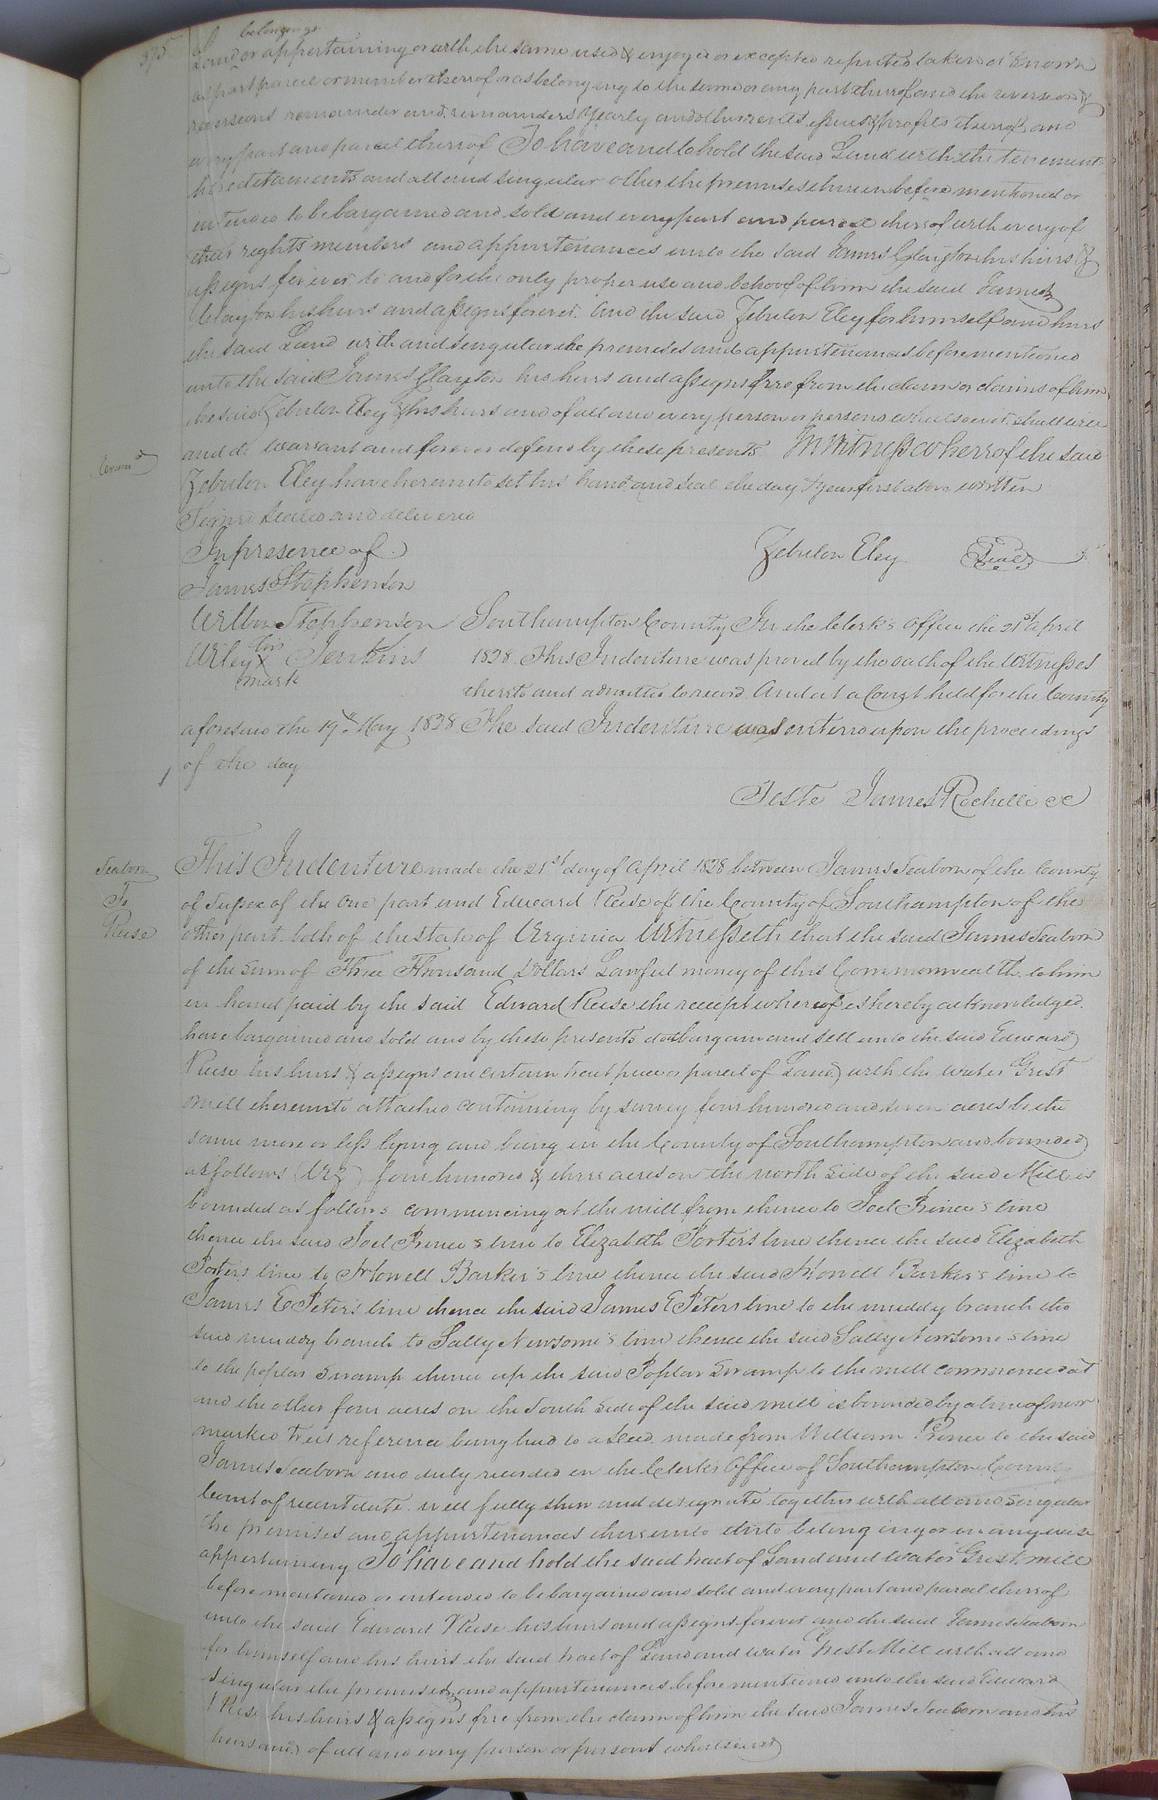 375
belonging
Land or appertaining or with the same used & enjoyed or excepted reputed taken or known
as part parcel or member thereof or as belonging to the same or any part thereof and the reversion &
reversions remainder and remainders Yearly and other rents issues & profits thereof and
every part and parcel thereof To have and to hold the said Land with the tenements
hereditaments and all and singular other the premises herein before mentioned or
intended to be bargained and sold and every part and parcel thereof with every of
their rights members and appurtenances unto the said James Clayton his heirs &
assigns forever to and for the only proper use and behoof of him the said James
Clayton his heirs and assigns forever. And the said Zebulon Eley for himself and heirs
the said Land with and singular the premises and appurtenances before mentioned
unto the said James Clayton his heirs and assigns free from the claim or claims of him
the said Zebulon Eley & his heirs and of all and every person or persons whatsoever shall will
and do warrant and forever defend by these presents In Witness whereof the said
Exam'd
Zebulon Eley have hereunto set his hand and seal the day & year first above written
Signed sealed and delivered
In presence of Zebulon Eley Seal
James Stephenson
Wilbon Stephenson Southampton County In the Clerk's Office the 21st April
Wiley his X mark Jenkins 1828 This Indenture was proved by the oath of the Witnesses
thereto and admitted to record And at a Court held for the County
aforesaid the 19th May 1828 The said Indenture was entered upon the proceedings
of the day
Teste James Rochelle CC
Seaborn
To
Reese
This Indenture made the 21st day of April 1828 between James Seaborn of the County
of Sussex of the one part and Edward Reese of the County of Southampton of the
other part both of the State of Virginia Witnesseth that the said James Seaborn
of the sum of Three Thousand Dollars Lawful money of this Commonwealth to him
in hand paid by the said Edward Reese the receipt whereof is hereby acknowledged
have bargained and sold and by these presents doth bargain and sell unto the said Edward
Reese his heirs & assigns one certain tract piece or parcel of Land with the water Grist
mill thereunto attached containing by survey four hundred and seven acres be the
same more or less lying and being in the County of Southampton and bounded
as follows (Viz) four hundred & three acres on the north side of the said Mill is
bounded as follows commencing at the mill from thence to Joel Prince's line
thence the said Joel Prince's line to Elizabeth Porter's line thence the said Elizabeth
Porter's line to Howell Barker's line thence the said Howell Barker's line to
James E Peter's line thence the said James E Peters line to the muddy branch the
said muddy branch to Sally Newsome's line thence the said Sally Newsome's line
to the poplar swamp thence up the said Poplar Swamp to the mill commenced at
and the other four acres on the South side of the said mill is bounded by a line of new
marked trees reference being had to a Deed made from William Prince to the said
James Seaborn and duly recorded in the Clerks Office of Southampton County
Court of recent date will fully shew and designate together with all and singular
the premises and appurtenances thereunto doth belonging or in any wise
appertaining To have and hold the said tract of Land and water Grist mill
before mentioned or intended to be bargained and sold and every part and parcel thereof
unto the said Edward Reese his heirs and assigns forever and the said James Seaborn
for himself and his heirs the said tract of Land and water Grist Mill with all and
singular the premises and appurtenances before mentioned unto the said Edward
Reese his heirs & assigns free from the claim of him the said James Seaborn and his
heirs and of all and every person or persons whatsoever